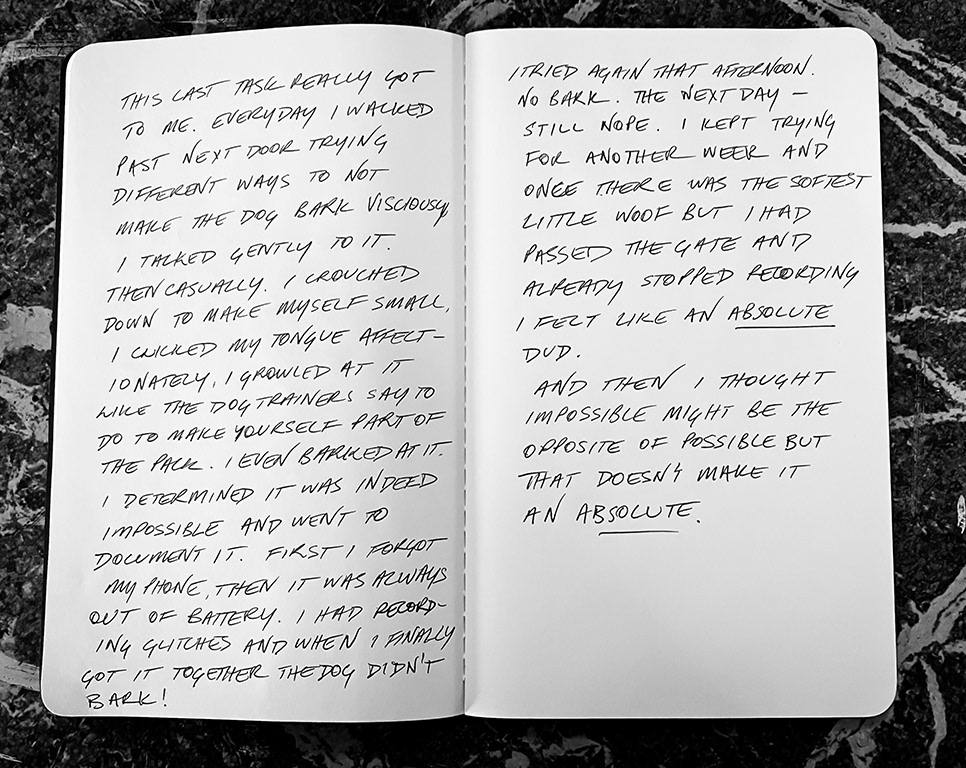 THIS LAST TASK REALLY GOT
TO ME. EVERYDAY I WALKED
PAST NEXT DOOR TRYING
DIFFERENT WAYS TO NOT
MAKE THE DOG BARK VISCIOUSLY
I TALKED GENTLY TO IT.
THEN CASUALLY. I CROUCHED
DOWN TO MAKE MYSELF SMALL,
I CLICKED MY TONGUE AFFECT-
IONATELY, I GROWLED AT IT
LIKE THE DOG TRAINERS SAY TO
DO TO MAKE YOURSELF PART OF
THE PACK. I EVEN BARKED AT IT.
I DETERMINED IT WAS INDEED
IMPOSSIBLE AND WENT TO
DOCUMENT IT. FIRST I FORGOT
MY PHONE, THEN IT WAS ALWAYS
OUT OF BATTERY. I HAD RECORD-
ING GLITCHES AND WHEN I FINALLY
GOT IT TOGETHER THE DOG DIDN'T
BARK!
I TRIED AGAIN THAT AFTERNOON.
NO BARK. THE NEXT DAY –
STILL NOPE. I KEPT TRYING
FOR ANOTHER WEEK AND
ONCE THERE WAS THE SOFTEST
LITTLE WOOF BUT I HAD
PASSED THE GATE AND
ALREADY STOPPED RECORDING
I FELT LIKE AN ABSOLUTE
DUD.
AND THEN I THOUGHT
IMPOSSIBLE MIGHT BE THE
OPPOSITE OF POSSIBLE BUT
THAT DOESN'T MAKE IT
AN ABSOLUTE.